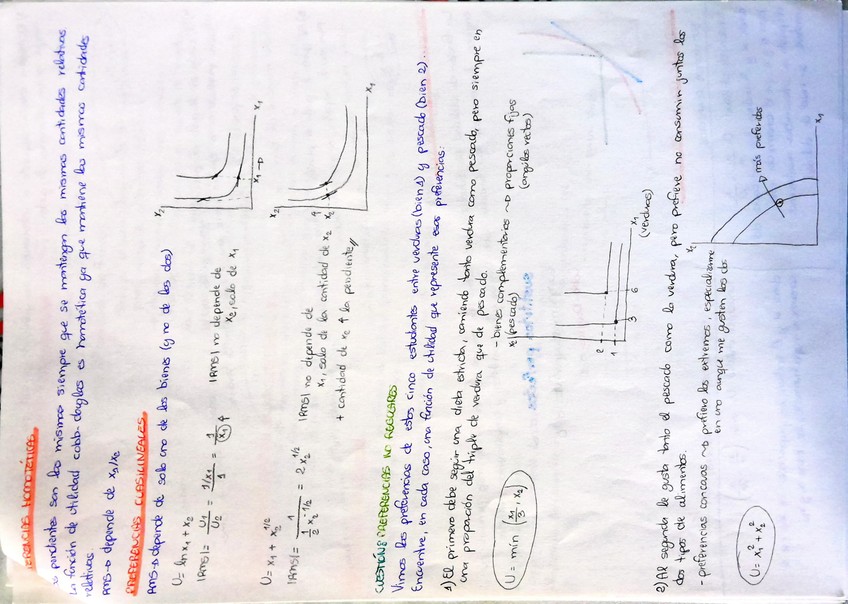 s pendientes son las mismas siempre que se mantengan las mismas cantidades relativas
la función de utilidad cobb-douglas es homotética ya que mantiene las mismas cantidades
relativas
RMS → depende de x1/x2
PREFERENCIAS CUASILINEALES
RMS → depende de solo uno de los bienes (y no de los dos)
U = ln x1 + x2
|RMS| = U1/U2 = (1/x1)/1 = 1/(x1) ↑
|RMS| no depende de
x2, solo de x1
x2
x1
x1
U = x1 + x2^1/2
|RMS| = 1/(1/2 x2^-1/2) = 2 x2^1/2
|RMS| no depende de
x1, solo de la cantidad de x2
+ cantidad de x2 ↑ la pendiente
x2
x2
x1
CUESTIÓN 8 PREFERENCIAS NO REGULARES
Vimos las preferencias de estos cinco estudiantes entre verduras (bien 1) y pescado (bien 2).
Encuentre, en cada caso, una función de utilidad que represente esas preferencias:
1) El primero debe seguir una dieta estricta, comiendo tanto verdura como pescado, pero siempre en
una proporción del triple de verdura que de pescado.
- bienes complementarios → proporciones fijas
(ángulos rectos)
U = min (x1/3, x2)
x2 (pescado)
2
1
3
6
x1
(verduras)
2) Al segundo le gusta tanto el pescado como la verdura, pero prefiere no consumir juntos los
dos tipos de alimentos.
- preferencias concavas → prefiero los extremos, especializarme
en uno aunque me gusten los dos
U = x1^2 + x2^2
x2
más preferidas
x1